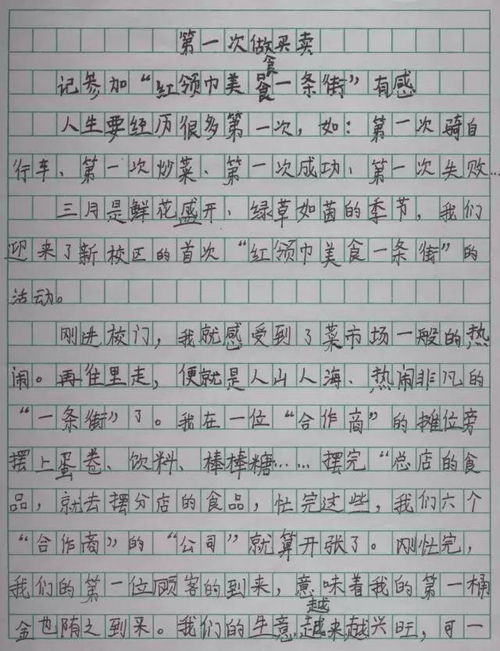 第一次做买卖
记参加“红领巾美食一条街”有感
人生要经历很多第一次，如：第一次骑自
行车、第一次炒菜、第一次成功、第一次失败…
三月是鲜花盛开、绿草如茵的季节，我们
迎来了新校区的首次“红领巾美食一条街”的
活动。
刚进校门，我就感受到了菜市场一般的热
闹。再往里走，便就是人山人海、热闹非凡的
“一条街”了。我在一位“合作商”的摊位旁
摆上蛋卷、饮料、棒棒糖……摆完“总店的食
品，就去摆分店的食品，忙完这些，我们六个
“合作商”的“公司”就算开张了。刚忙完，
我们的第一位顾客的到来，意味着我的第一桶
金也随之到来。我们的生意越来越兴旺，可一